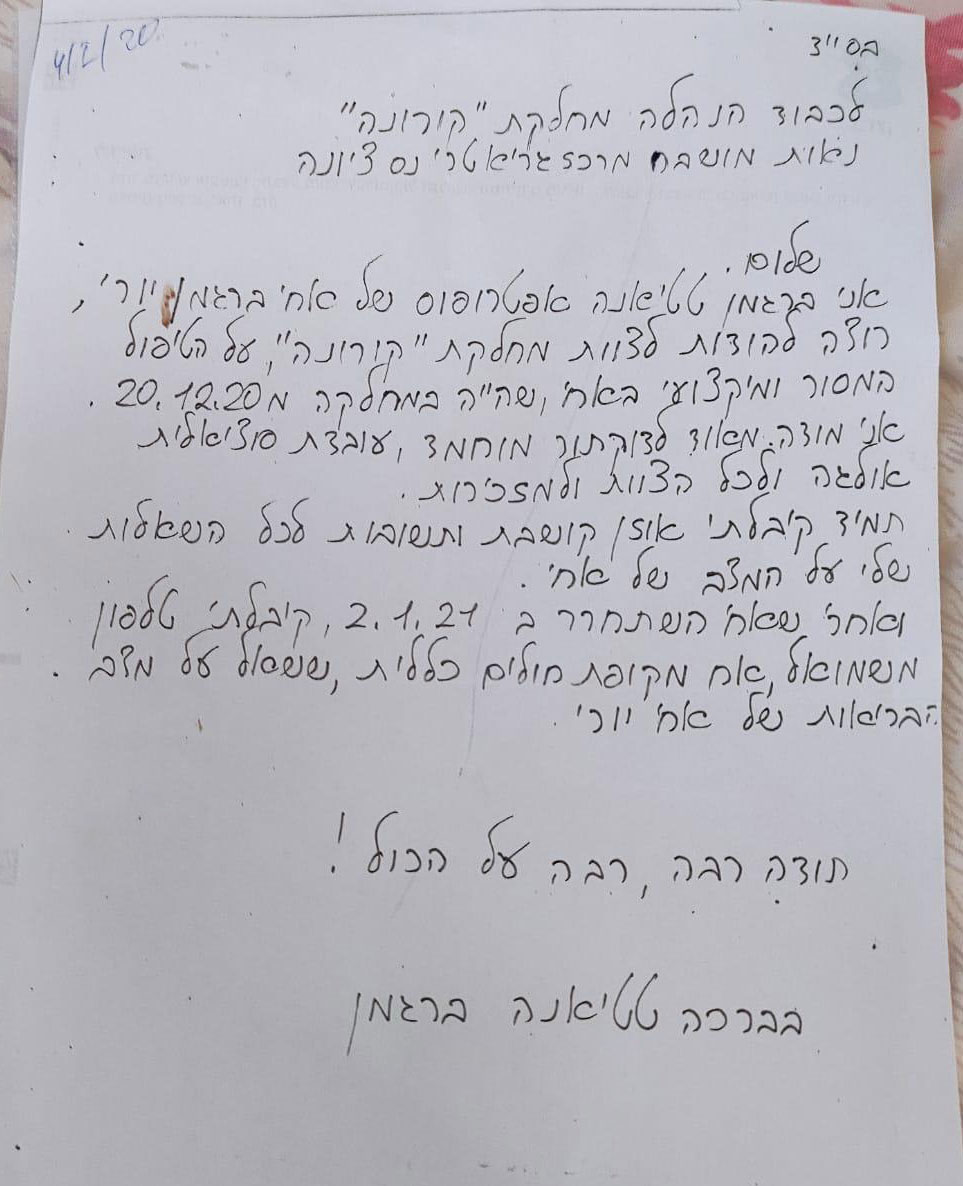 4/2/20
בס"ד
לכבוד הנהלה מחלקת "קורונה"
נאות מושבה מרכז גריאטרי נס ציונה
שלום.
אני ברגמן טטיאנה אפטרופוס של אחי ברגמן יורי,
רוצה להודות לצוות מחלקת "קורונה", על הטיפול
המסור ומיקצועי באחי, שהייה במחלקה מ 20.12.20.
אני מודה מאוד לדוקתור מוחמד, עובדת סוציאלית
אולגה ולכל הצוות ולמזכירות.
תמיד קיבלתי אוזן קושבת ותשובות לכל השאלות
שלי על המצב של אחי.
ואחרי שאחי השתחרר ב 2.1.21, קיבלתי טלפון
משמואל, אח מקופת חולים כללית, ששאל על מצב
הבריאות של אחי יורי.
תודה רבה, רבה על הכול!
בברכה טטיאנה ברגמן